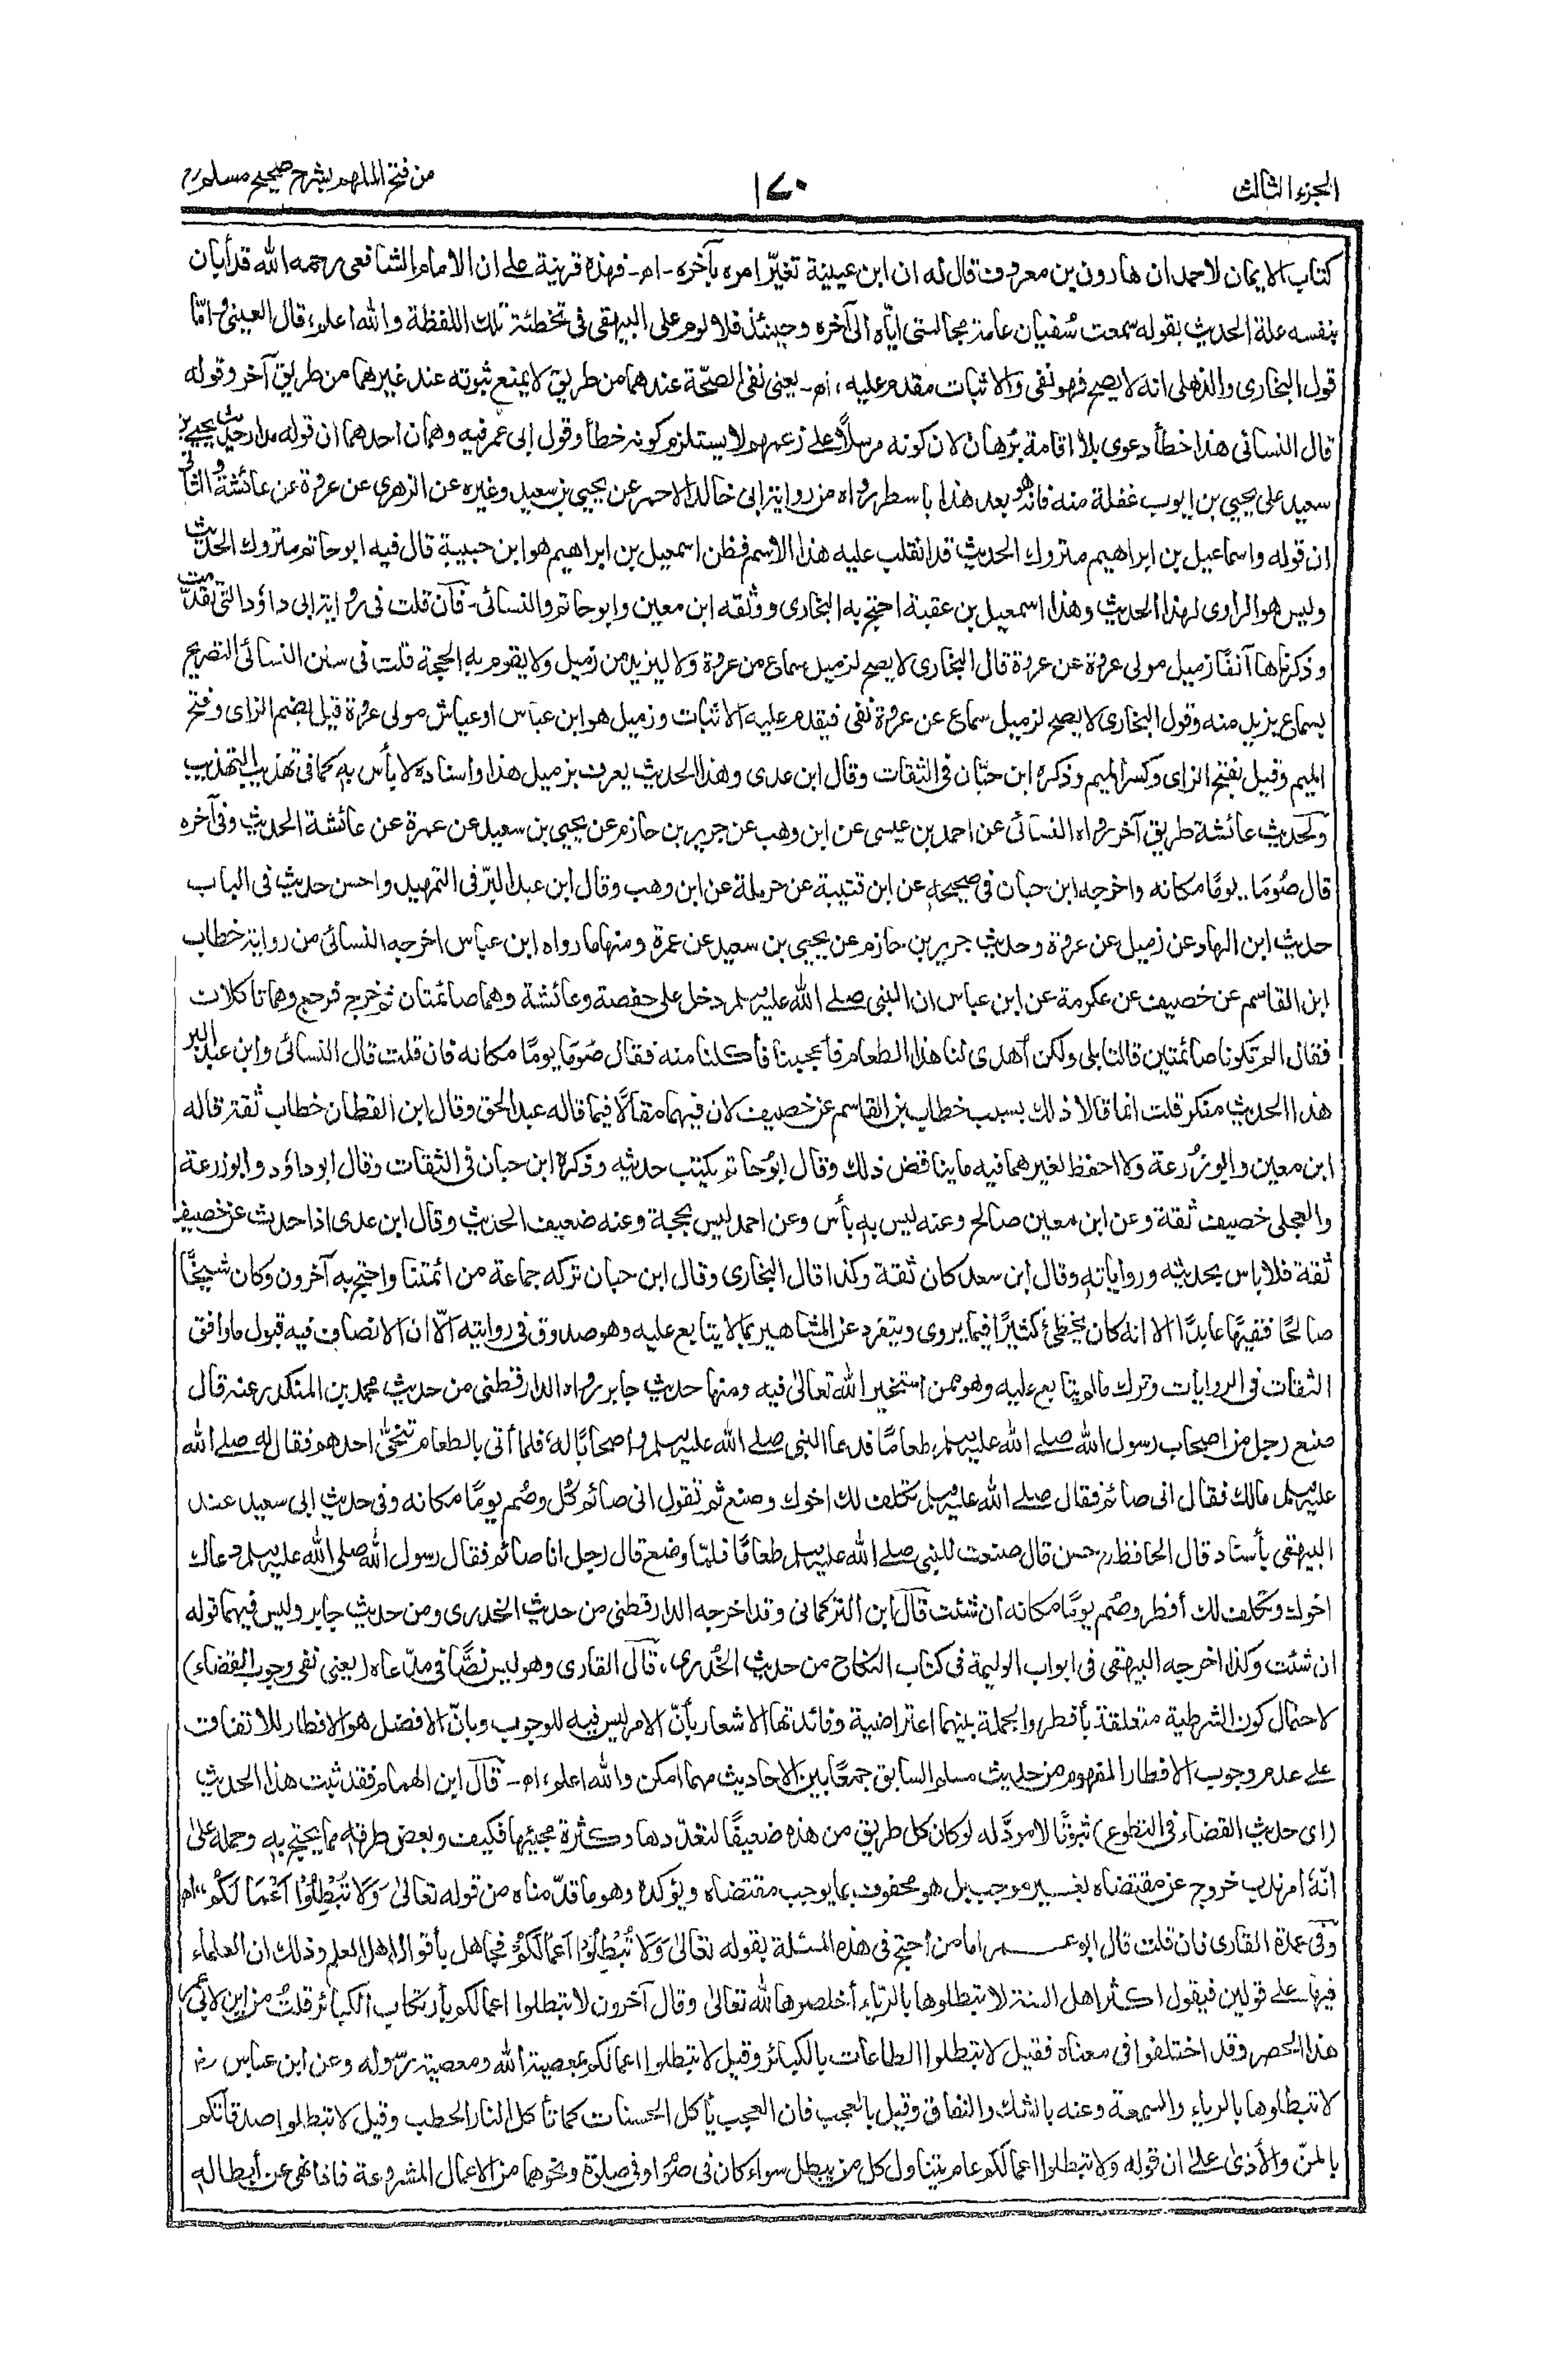 الجزء الثالث
١٧٠
من فتح الملهم بشرح صحيح مسلم
كتاب الايمان لاحمد ان هارون بن معروف قال له ان ابن عيينة تغيّر امره بآخره - اه - فهذه قرينة على ان الامام الشافعي رحمه الله قد أبان
بنفسه علة الحديث بقوله سمعت سُفيان عامة مجالستى ايّاه الى آخره وحينئذ فلا لوم على البيهقى فى تخطئة تلك اللفظة والله اعلم، قال العينىؒ وامّا
قول البخارى والذهلى انه لا يصح فهو نفى والاثبات مقدم عليه، اه - يعنى نفى الصحّة عندهما من طريق لا يمنع ثبوته عند غيرهما من طريق آخر وقوله
قال النسائى هذا خطأ دعوى بلا اقامة بُرهان لان كونه مرسلاً على زعمهم لا يستلزم كونه خطأ وقول ابى عمر فيه وهمان احدهما ان قوله مدار حديث يحيى بن
سعيد على يحيى بن ايوب غفلة منه فانه هو بعد هذا باسطر رواه من رواية ابى خالد الاحمر عن يحيى بن سعيد وغيره عن الزهرى عن عروة عن عائشة والثانى
ان قوله واسماعيل بن ابراهيم متروك الحديث قد انقلب عليه هذا الاسم فظن اسمعيل بن ابراهيم هو ابن حبيبة قال فيه ابو حاتم متروك الحديث
وليس هو الراوى لهذا الحديث وهذا اسمعيل بن عقبة احتج به البخارى ووثقه ابن معين وابو حاتم والنسائى - فان قلت فى رواية ابى داؤد التى تقدّمت
وذكرناها آنفًا زميل مولى عروة عن عروة قال البخارى لا يصح لزميل سماع من عروة ولا ليزيد من زميل ولا يقوم به الحجة قلت فى سنن النسائى التصريح
بسماع يزيد منه وقول البخارى لا يصح لزميل سماع عن عروة نفى فيقدم عليه الاثبات وزميل هو ابن عباس او عياش مولى عروة قيل بضم الزاى وفتح
الميم وقيل بفتح الزاى وكسر الميم وذكره ابن حبّان فى الثقات وقال ابن عدى وهذا الحديث يعرف بزميل هذا واسناده لا بأس به كما فى تهذيب التهذيب
ولحديث عائشة طريق آخر رواه النسائى عن احمد بن عيسى عن ابن وهب عن جرير بن حازم عن يحيى بن سعيد عن عمرة عن عائشة الحديث وفى آخره
قال صُومَا.. يومًا مكانه واخرجه ابن حبان فى صحيحه عن ابن قتيبة عن حرملة عن ابن وهب وقال ابن عبد البرّ فى التمهيد واحسن حديث فى الباب
حديث ابن الهاد عن زميل عن عروة وحديث جرير بن حازم عن يحيى بن سعيد عن عمرة ومنها ما رواه ابن عباس اخرجه النسائى من رواية خطاب
ابن القاسم عن خصيف عن عكرمة عن ابن عباس ان النبى صلى الله عليه وسلم دخل على حفصة وعائشة وهما صائمتان ثم خرج فرجع وهما تاكلان
فقال الم تكونا صائمتين قالتا بلى ولكن أهدى لنا هذا الطعام فأعجبنا فأكلنا منه فقال صُومَا يومًا مكانه فان قلت قال النسائى وابن عبد البر
هذا الحديث منكر قلت انما قالا ذلك بسبب خطاب بن القاسم عن خصيف لان فيهما مقالًا فيما قاله عبد الحق وقال ابن القطان خطاب ثقة قاله
ابن معين وابو زُرعة ولا احفظ لغيرهما فيه ما يناقض ذلك وقال ابُو حاتم يكتب حديثه وذكره ابن حبان فى الثقات وقال ابو داؤد وابو زرعة
والعجلى خصيف ثقة وعن ابن معين صالح وعنه ليس به بأس وعن احمد ليس بحجة وعنه ضعيف الحديث وقال ابن عدى اذا حدث عن خصيف
ثقة فلا باس بحديثه ورواياته وقال ابن سعد كان ثقة وكذا قال البخارى وقال ابن حبان تركه جماعة من ائمتنا واحتج به آخرون وكان شيخًا
صالحًا فقيهًا عابدًا الا انه كان يخطئ كثيرًا فيما يروى ويتفرد عن المشاهير بما لا يتابع عليه وهو صدوق فى روايته الّا ان الانصاف فيه قبول ما وافق
الثقات فى الروايات وترك مالم يتابع عليه وهو ممن استخير الله تعالىٰ فيه ومنها حديث جابر رواه الدارقطنى من حديث محمد بن المنكدر عنه قال
صنع رجل من اصحاب رسول الله صلى الله عليه وسلم طعامًا فدعا النبى صلى الله عليه وسلم واصحابًا له، فلما أتى بالطعام تنحّى احدهم فقال له صلى الله
عليه وسلم مالك فقال انى صائم فقال صلى الله عليه وسلم تكلف لك اخوك وصنع ثم تقول انى صائم كُل وصُم يومًا مكانه وفى حديث ابى سعيد عند
البيهقى بأسناد قال الحافظ رح حسن قال صنعت للنبى صلى الله عليه وسلم طعامًا فلمّا وضع قال رجل انا صائم فقال رسول الله صلى الله عليه وسلم دعاك
اخوك وتكلف لك أفطر وصُم يومًا مكانه ان شئت قال ابن التركمانى وقد اخرجه الدارقطنى من حديث الخدرى ومن حديث جابر وليس فيهما قوله
ان شئت وكذا اخرجه البيهقى فى ابواب الوليمة فى كتاب النكاح من حديث الخُدرى، قال القارى وهو ليس نصًّا فى مدّعاه (يعنى نفى وجوب القضاء)
لاحتمال كون الشرطية متعلقة بأفطر والجملة بينهما اعتراضية وفائدتها الاشعار بأنّ الامر ليس فيه للوجوب وبانّ الافضل هو الافطار للاتفاق
على عدم وجوب الافطار المفهوم من حديث مسلم السابق جمعًا بين الاحاديث مهما امكن والله اعلم، اه - قال ابن الهمام فقد ثبت هذا الحديث
(اى حديث القضاء فى التطوع) ثبوتًا لا مردَّ له لو كان كل طريق من هذه ضعيفًا لتعدّدها وكثرة مجيئها فكيف وبعض طرقه مما يحتج به وحمله علىٰ
انّهٗ امر ندب خروج عن مقتضاه بغير موجب بل هو محفوف بما يوجب مقتضاه ويؤكده وهو ما قدّمناه من قوله تعالىٰ وَلَا تُبْطِلُوْا اَعْمَا لَكُمْ "اه
وفى عمدة القارى فان قلت قال ابو عمر اما من احتج فى هذه المسئلة بقوله تعالىٰ وَلَا تُبْطِلُوْا اَعْمَالَكُمْ فجاهل بأقوال اهل العلم وذلك ان العلماء
فيها على قولين فيقول اكثر اهل السنة لا تبطلوها بالرّياء أخلصوها لله تعالىٰ وقال آخرون لا تبطلوا اعمالكم بأرتكاب الكبائر قلتُ من اين لابى عمر
هذا الحصر وقد اختلفوا فى معناه فقيل لا تبطلوا الطاعات بالكبائر وقيل لا تبطلوا اعمالكم بمعصية الله ومعصية رسوله وعن ابن عباس رضـ
لا تبطلوها بالرياء والسمعة وعنه بالشك والنفاق وقيل بالعجب فان العجب يأكل الحسنات كما تأكل النار الحطب وقيل لا تبطلوا صدقاتكم
بالمنّ والأذىٰ علىٰ ان قوله ولا تبطلوا اعمالكم عام يتناول كل من يبطل سواء كان فى صوم او فى صلوٰة ونحوهما من الاعمال المشروعة فاذا نهى عن أبطاله